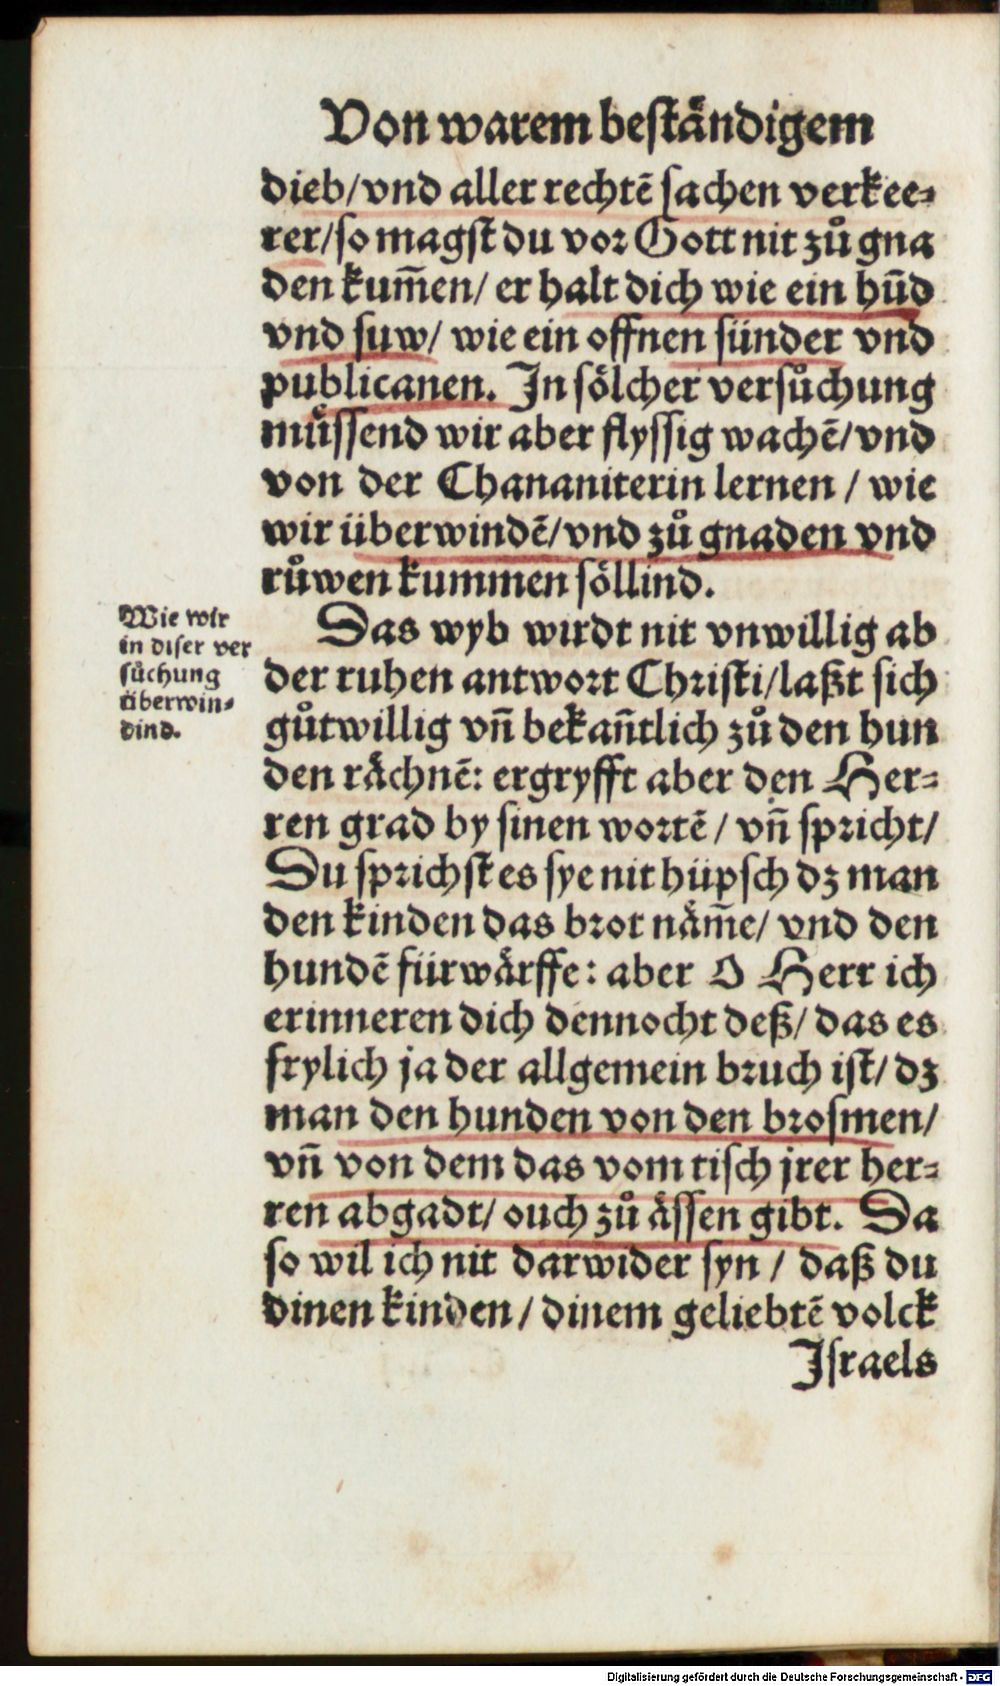 Von warem beständigem
dieb/vnd aller rechtē sachen verkee=
rer/so magst du vor Gott nit zů gna
den kum̄en/ er halt dich wie ein hūd
vnd suw/ wie ein offnen sünder vnd
publicanen. In sölcher versůchung
müssend wir aber flyssig wachē/vnd
von der Chananiterin lernen / wie
wir überwindē/vnd zů gnaden vnd
růwen kummen söllind.
Wie wir
in diser ver
sůchung
überwin=
dind.
Das wyb wirdt nit vnwillig ab
der ruhen antwort Christi/laßt sich
gůtwillig vn̄ bekan̄tlich zů den hun
den rächnē: ergryfft aber den Her=
ren grad by sinen wortē / vn̄ spricht/
Du sprichst es sye nit hüpsch dz man
den kinden das brot näm̄e/ vnd den
hundē fürwärffe: aber O Herr ich
erinneren dich dennocht deß/ das es
frylich ja der allgemein bruch ist/ dz
man den hunden von den brosmen/
vn̄ von dem das vom tisch jrer her=
ren abgadt/ ouch zů ässen gibt. Da
so wil ich nit darwider syn / daß du
dinen kinden / dinem geliebtē volck
Israels
Digitalisierung gefördert durch die Deutsche Forschungsgemeinschaft - DFG